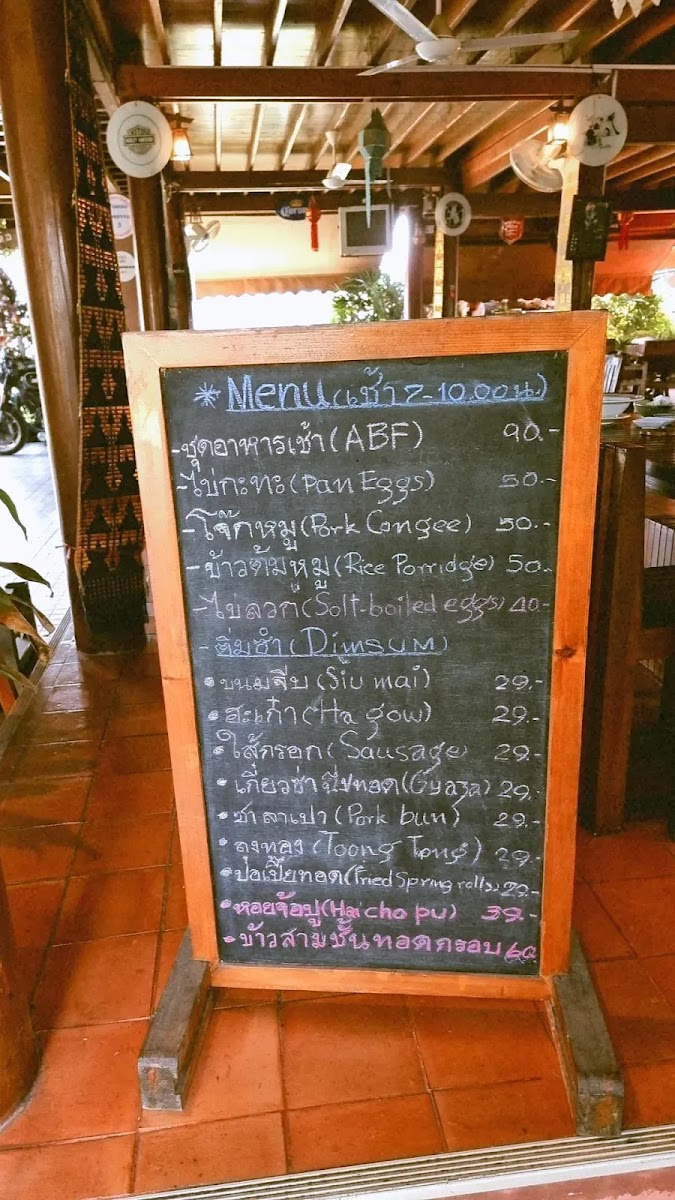 Corona
* Menu (เช้า 7-10.00น.)
-ชุดอาหารเช้า (ABF) 90.-
-ไข่กะทะ (Pan Eggs) 50.-
-โจ๊กหมู (Pork Congee) 50.-
-ข้าวต้มหมู (Rice Porridge) 50.-
-ไข่ลวก (Solt-boiled eggs) 40.-
-ติ่มซำ (Dimsum)
•ขนมจีบ (Siu mai) 29.-
•ฮะเก๋า (Ha gow) 29.-
•ไส้กรอก (Sausage) 29.-
•เกี๊ยวซ่า ทอด (Gyaza) 29.-
•ซาลาเปา (Pork bun) 29.-
•ถุงทอง (Toong Tong) 29.-
•ปอเปี๊ยทอด (Fried Spring rolls) 29.-
•หอยจ้อปู (Hai cho pu) 39.-
•ข้าวสามชั้นทอดกรอบ 60.